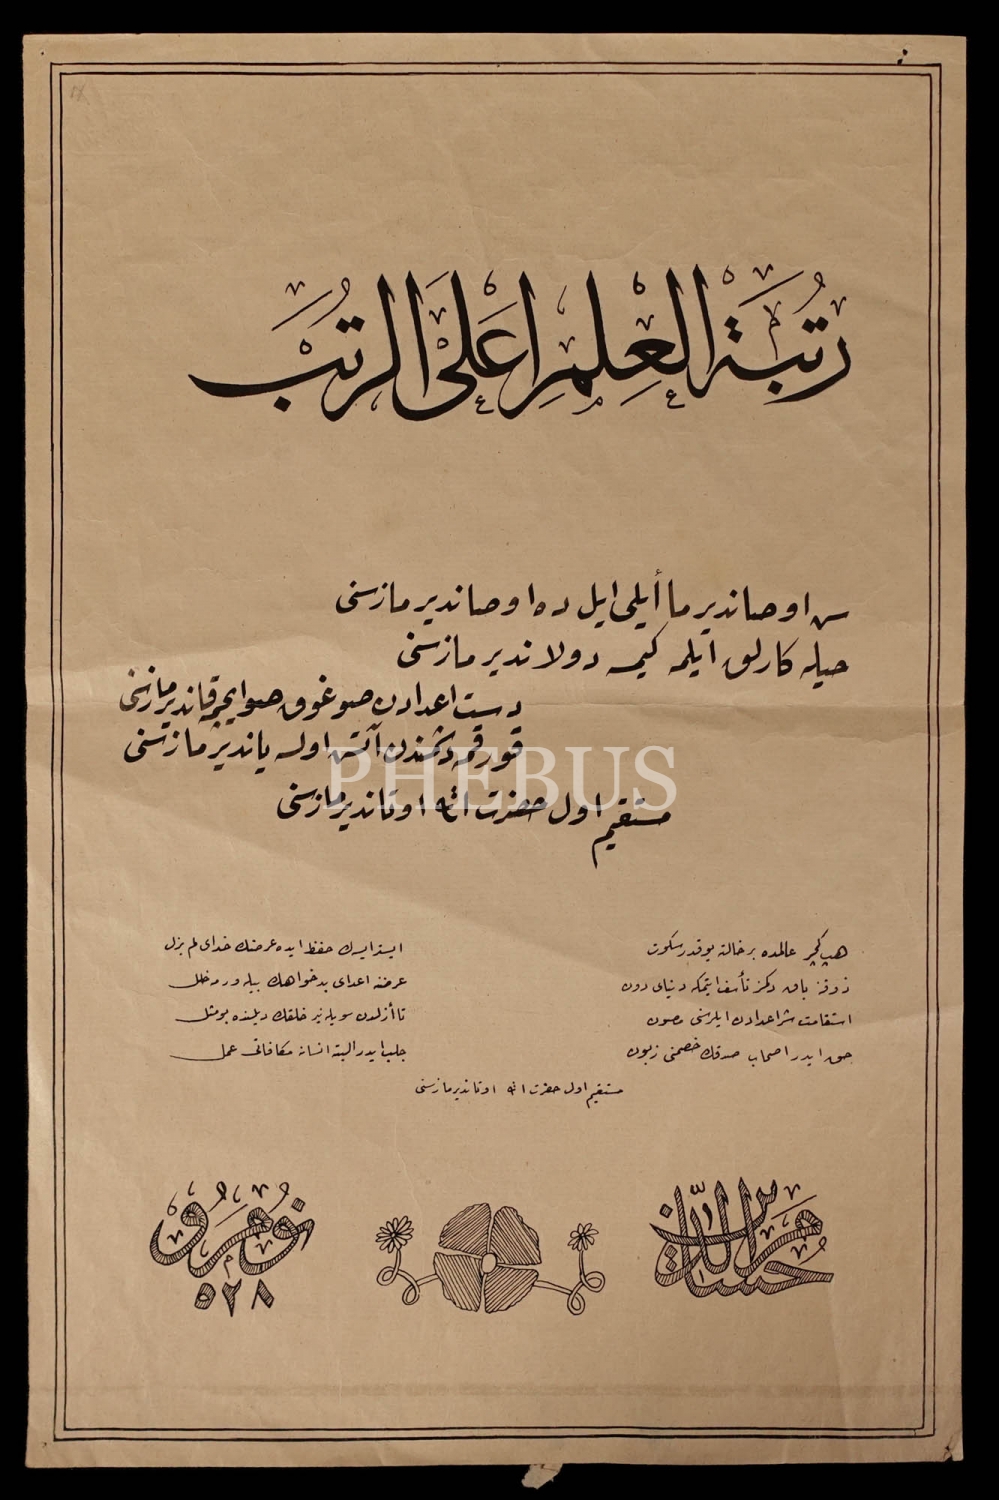 رُتْبَةُ الْعِلْمِ اَعْلَى الرُّتَبِ
سن اوصاندیرما أیلی ایل ده اوصاندیرمازسنی
حیله کارلق ایلمه کیمسه دولاندیرمازسنی
دست اعدادن صوغوق صو ایچمه قاندیرمازسنی
قورقمه دشمندن آتش اولسه یاندیرمازسنی
مستقیم اول حضرت الله اوتاندیرمازسنی
PHEBUS
هپ کچر عالمده بر حالته یوقدر سکون
ذوقنه باق دکمز تأسف ایتمکه دنیای دون
استقامت شر اعدادن ایلر سنی مصون
حق ایدر اصحاب صدقک خصمنی زبون
ایسترایسه‌ك حفظ ایده عرضك خدای لم یزل
عرضنه اعدای بدخواهك بیله ورمه خلل
تا أزلدن سویلنیر خلقك دیلنده بو مثل
جلب ایدر البته انسانه مکافاتی عمل
مستقیم اول حضرت الله اوتاندیرمازسنی
٥٢٨